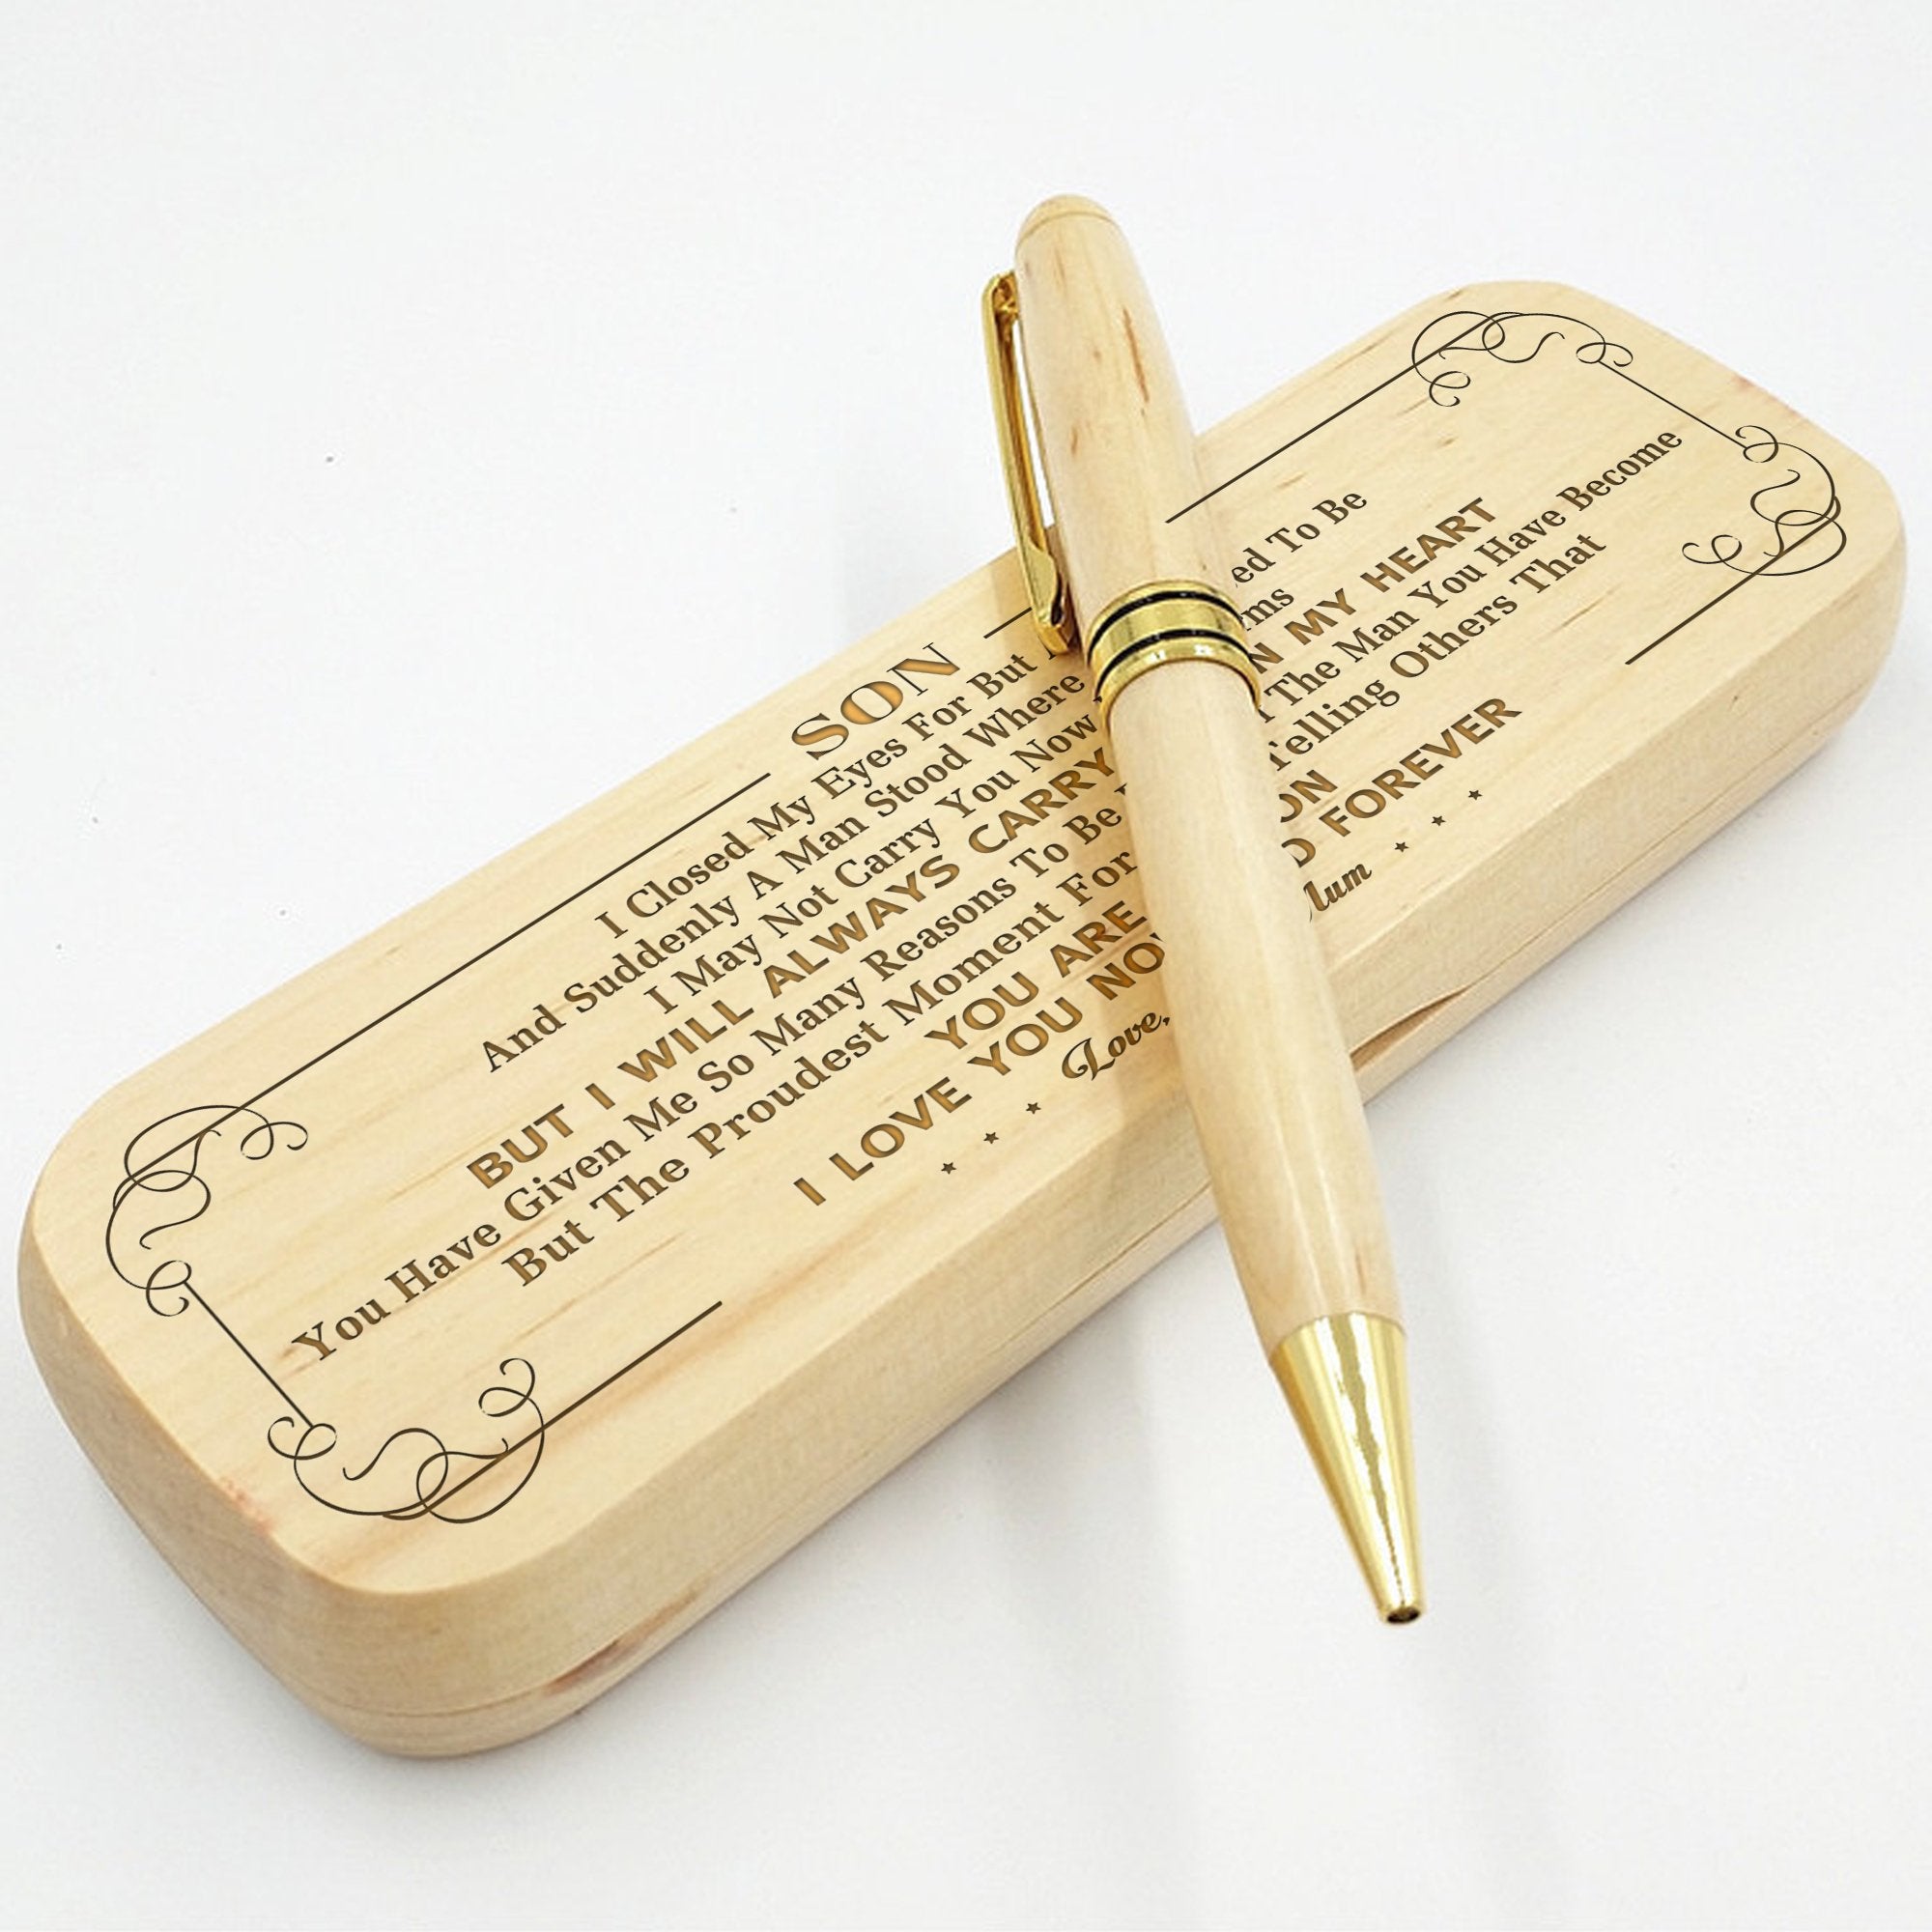 SON
I Closed My Eyes For But
And Suddenly A Man Stood Where To Be
I May Not Carry You Now
BUT I WILL ALWAYS CARRY MY HEART
You Have Given Me So Many Reasons To Be The Man You Have Become
But The Proudest Moment For Telling Others That
YOU ARE
I LOVE YOU FOREVER
Love, Mum